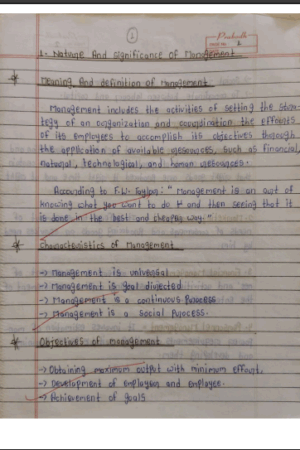 1
1- Nature And Significance of Management
* Meaning And definition of Management
Management includes the activities of setting the stra-
tegy of an organization and coordination the efforts
of its employees to accomplish its objectives through
the application of available resources, such as financial,
natural, technological, and human resources.
According to F.W. Taylor: "Management is an art of
knowing what you want to do & and then seeing that it
is done in the best and cheapest way."
* Characteristics of Management
→ Management is universal
→ Management is goal directed
→ Management is a continuous Process
→ Management is a Social Process.
* Objectives of management
→ Obtaining maximum output with minimum effort,
→ Development of employers and employee.
→ Achievement of goals